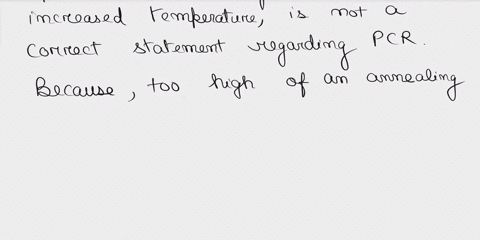 increased temperature, is not a
correct statement regarding PCR.
Because, too high of an annealing